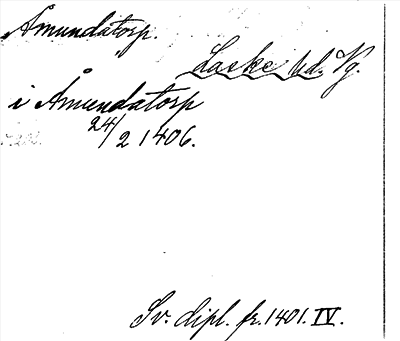 Åmundatorp.
Laske hd. Vg.
i Åmundatorp
24/2 1406.
Sv. dipl. fr. 1401. IV.